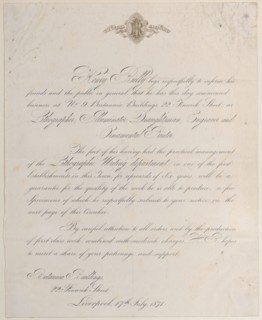 begs respectfully to inform his
friends and the public in general that he has this day commenced
business at No 9 Batavia Buildings, 22 Street as
Lithographic & Illuminate Draughtsman, Engraver and
Ornamental
The fact of his having had the practical management
of the Lithographic Writing department in one of the first
Establishments in this Town for upwards of six years will be a
guarantee for the quality of the work he is able to produce, a few
Specimens of which he respectfully submits to your notice on the
next page of this Circular.
By careful attention to all orders, and by the production
of first class work combined with moderate charges, hopes
to merit a share of your patronage and support.
Buildings,
22 Street
Liverpool, 17th July 1876